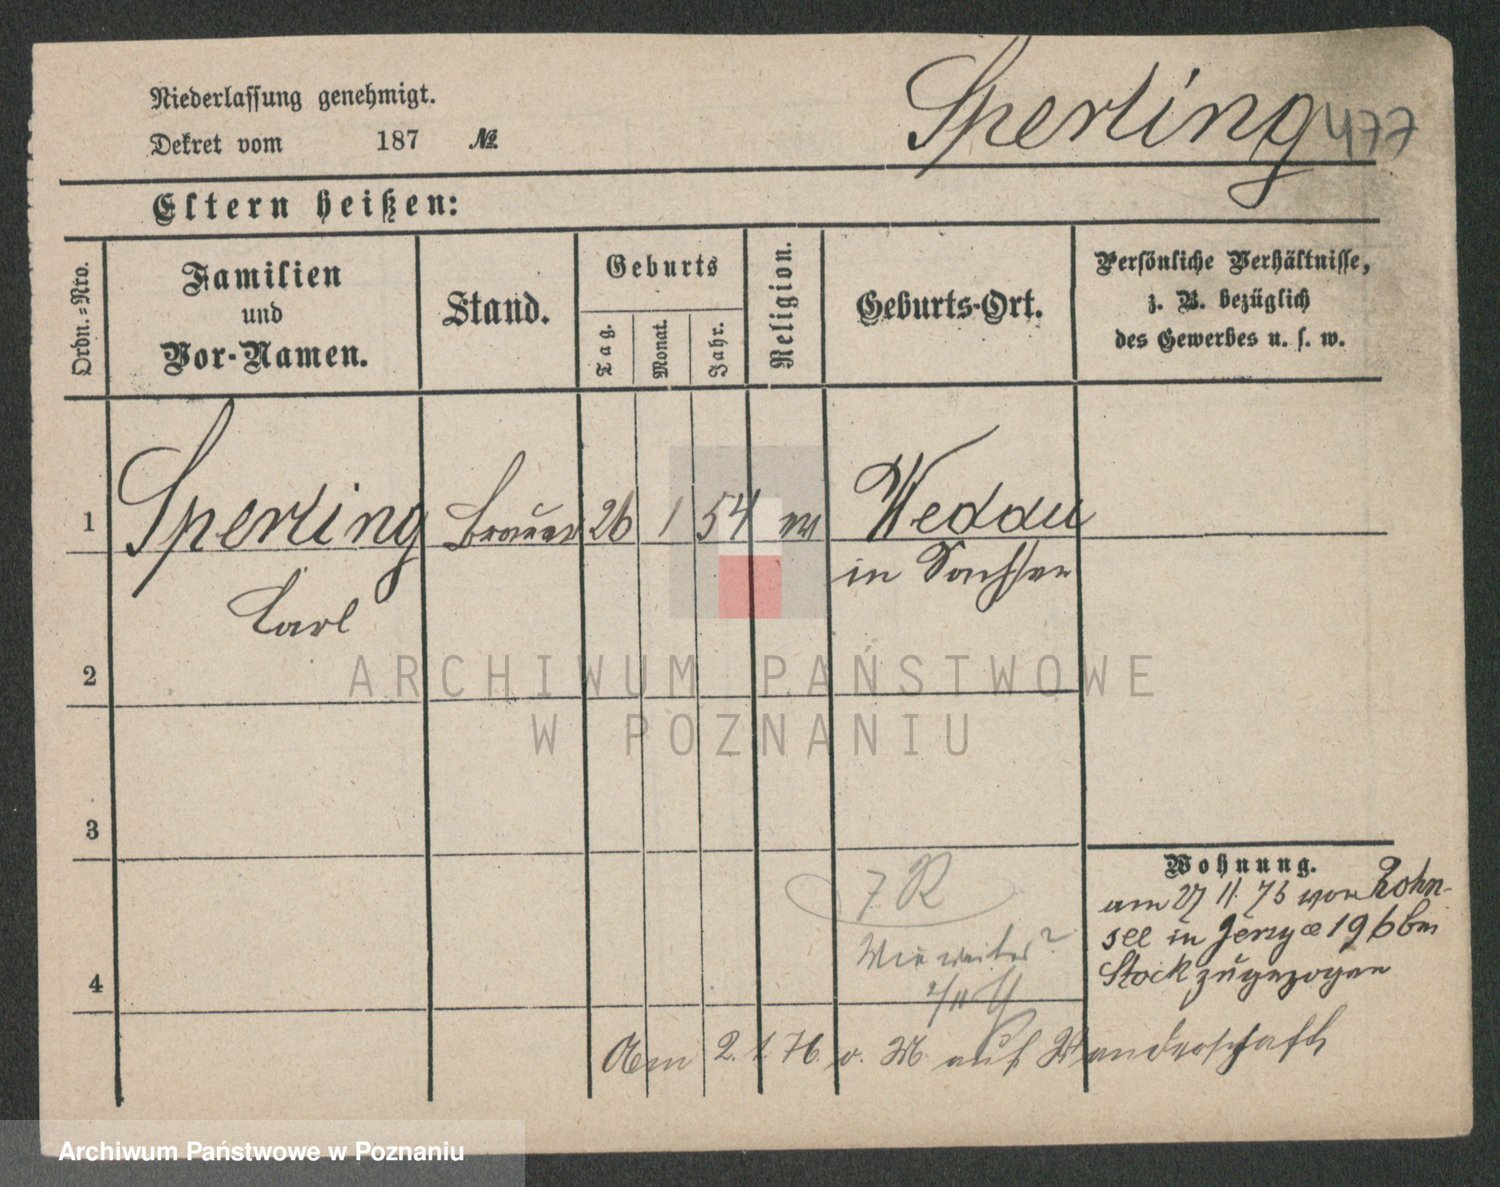 Niederlassung genehmigt.
Dekret vom 187 №
Sperling 477
Eltern heißen:
Ordn.-Nro.
Familien
und
Vor-Namen.
Stand.
Geburts
Tag.
Monat.
Jahr.
Religion.
Geburts-Ort.
Persönliche Verhältnisse,
z. B. bezüglich
des Gewerbes u. s. w.
1 Sperling Brauer 26 1 54 Weddu
in Sachsen
Carl
2
ARCHIWUM PAŃSTWOWE
W POZNANIU
3
Wohnung.
am 27 11. 75 von Kohn-
see in Jerzyce 196 bei
Stock zugezogen
7 R
Wie weiter?
4
Am 2. 1. 76. v. M. auf Wanderschaft
Archiwum Państwowe w Poznaniu